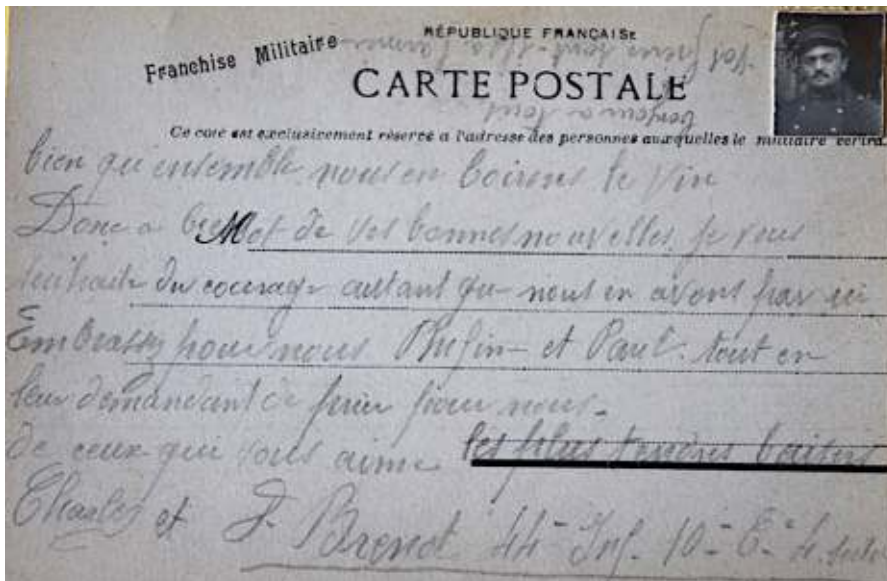 RÉPUBLIQUE FRANÇAISE
Franchise Militaire
CARTE POSTALE
Vos frères sont-ils a l'armée
bonjour a tout
Ce coté est exclusivement réservé a l'adresse des personnes auxquelles le militaire écrira.
bien qu'ensemble nous en boirons le vin
Donc a bientot de vos bonnes nouvelles je vous
souhaite du courage autant que nous en avons par ici
Embrassez pour nous et Paul tout en
leur demandant de prier pour nous-
de ceux qui vous aime les plus tendres baisers
Charles et J. Brenot 44e Inf. 10e C.ie